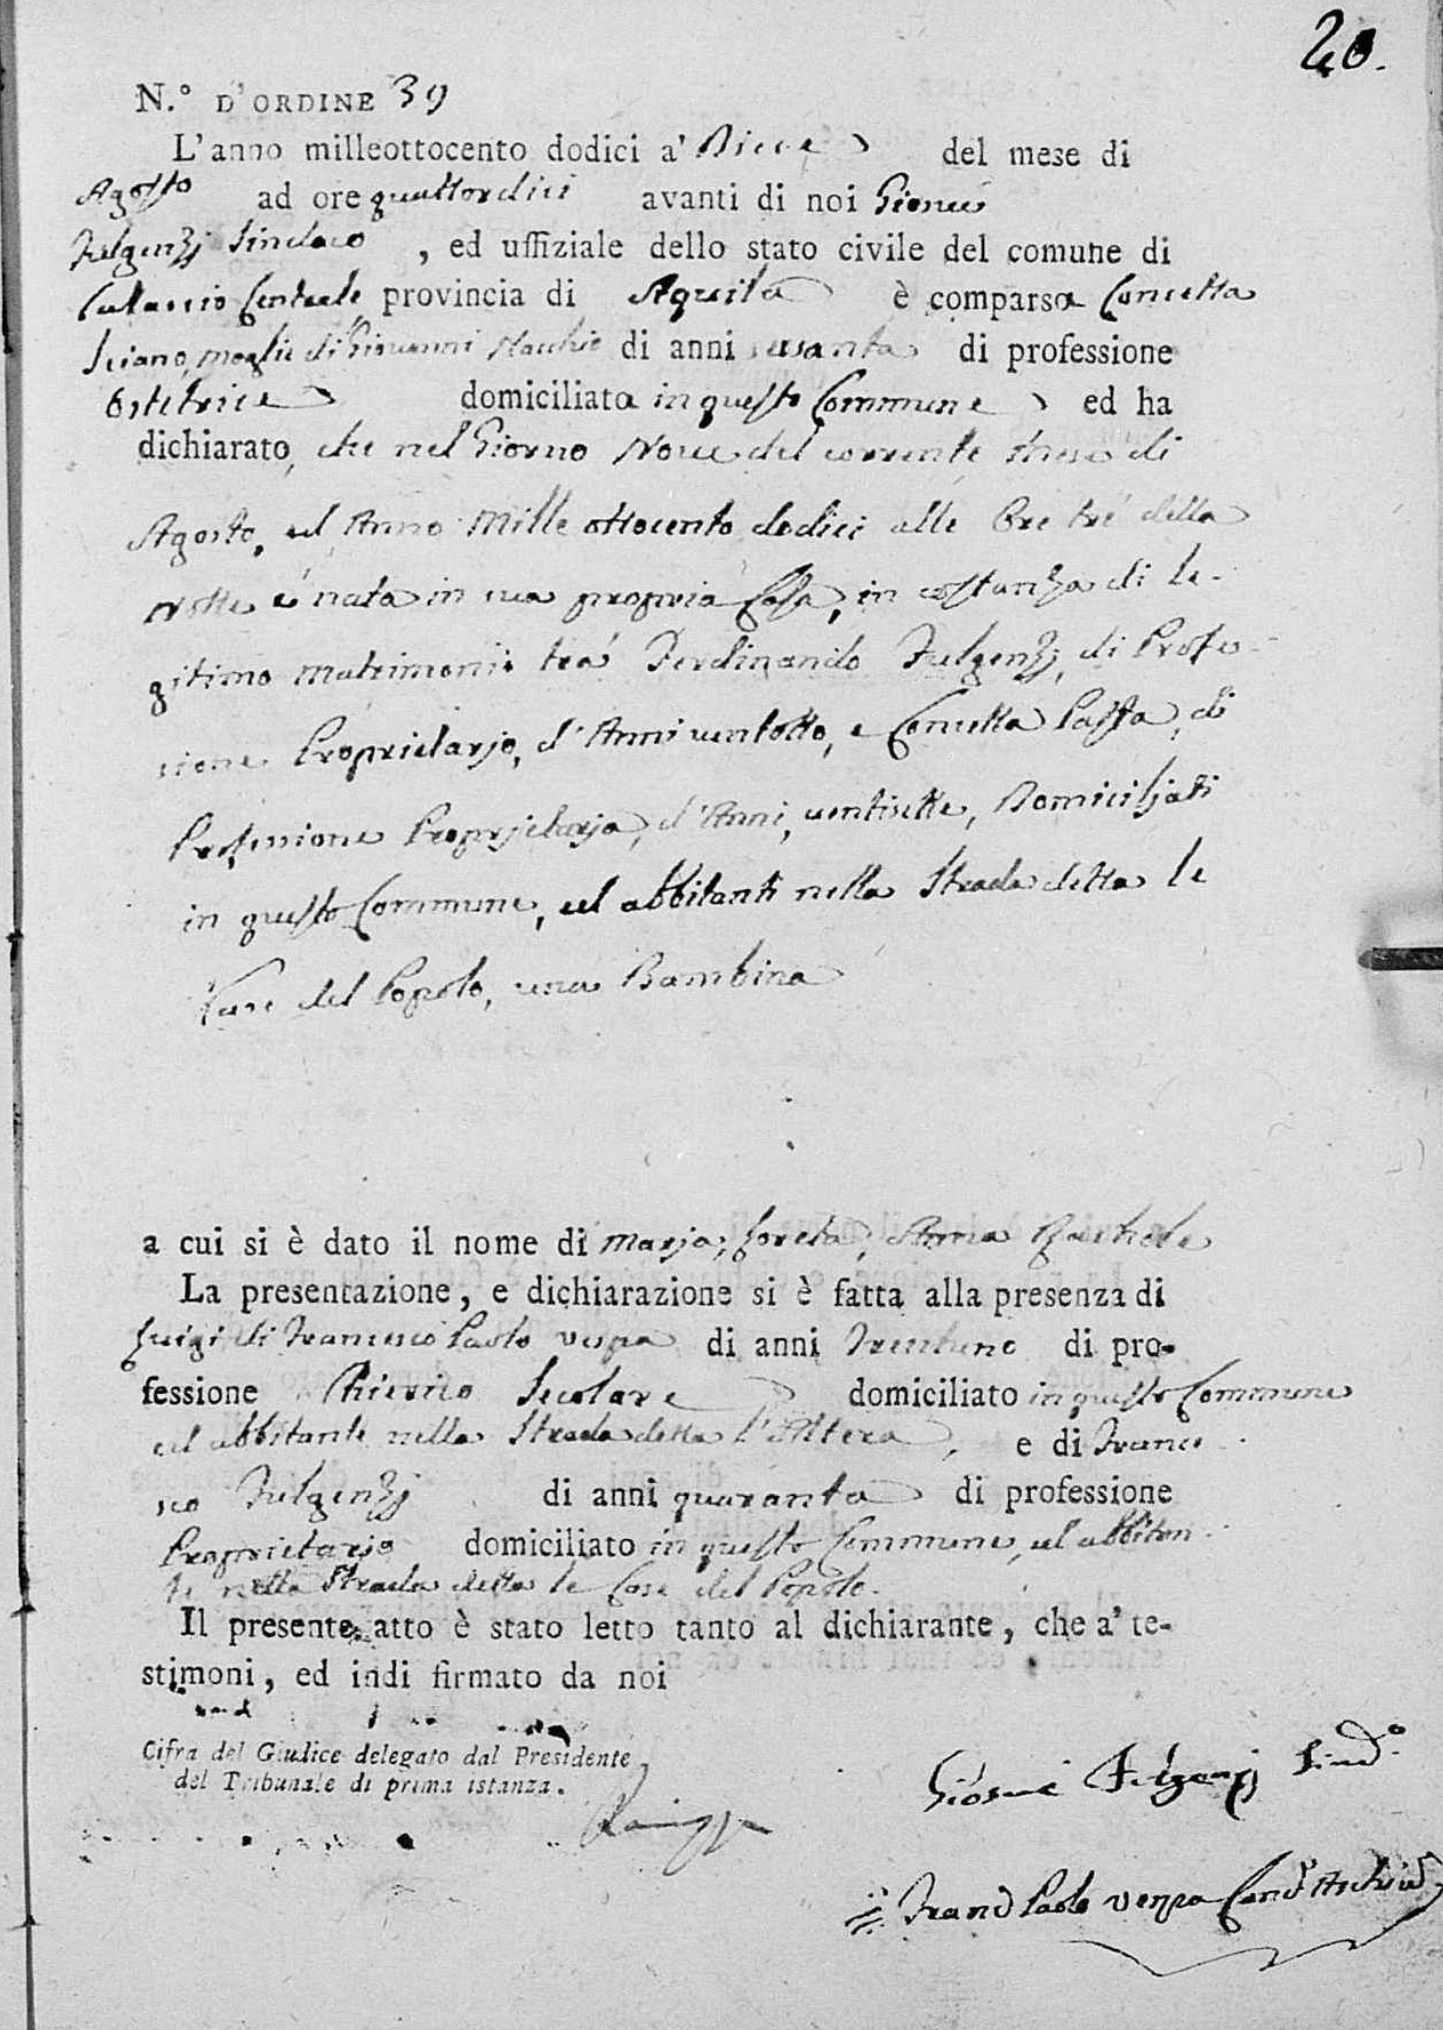 20.
N.° D'ORDINE 39
L'anno milleottocento dodici a' Diece del mese di
Agosto ad ore quattordici avanti di noi Giosuè
Fulgenzj Sindaco , ed uffiziale dello stato civile del comune di
Centrale provincia di Aquila è comparsa Concetta
Sciano, moglie di Giovanni di anni sessanta di professione
Ostetrice domiciliata in questo Commune ed ha
dichiarato, che nel Giorno Nove del corrente Mese di
Agosto, ed Anno Mille ottocento dodici alle Ore tré della
Notte é nata in sua propria Casa, in costanza di le-
gitimo matrimonio trà Ferdinando Fulgenzj, di Profes-
sione Proprietarjo, d'Anni ventotto, e Concetta Passa, di
Professione Proprjetarja, d'Anni, ventisette, Domiciljati
in questo Commune, ed abbitanti nella Strada detta le
Case del Popolo, una Bambina
a cui si è dato il nome di Marja, Loreta, Anna Rachele
La presentazione, e dichiarazione si è fatta alla presenza di
Luigi di Francesco Paolo Vespa di anni Trentuno di pro-
fessione Chierico Secolare domiciliato in questo Commune
ed abbitante nella Strada detta l'Altera, e di France-
sco Fulgenzj di anni quaranta di professione
Proprietarjo domiciliato in questo Commune, ed abbitan-
te nella Strada detta le Case del Popolo.
Il presente atto è stato letto tanto al dichiarante, che a' te-
stimoni, ed indi firmato da noi
Cifra del Giudice delegato dal Presidente
del Tribunale di prima istanza.
Giosuè Fulgenzj Sind.°
Paolo Vespa